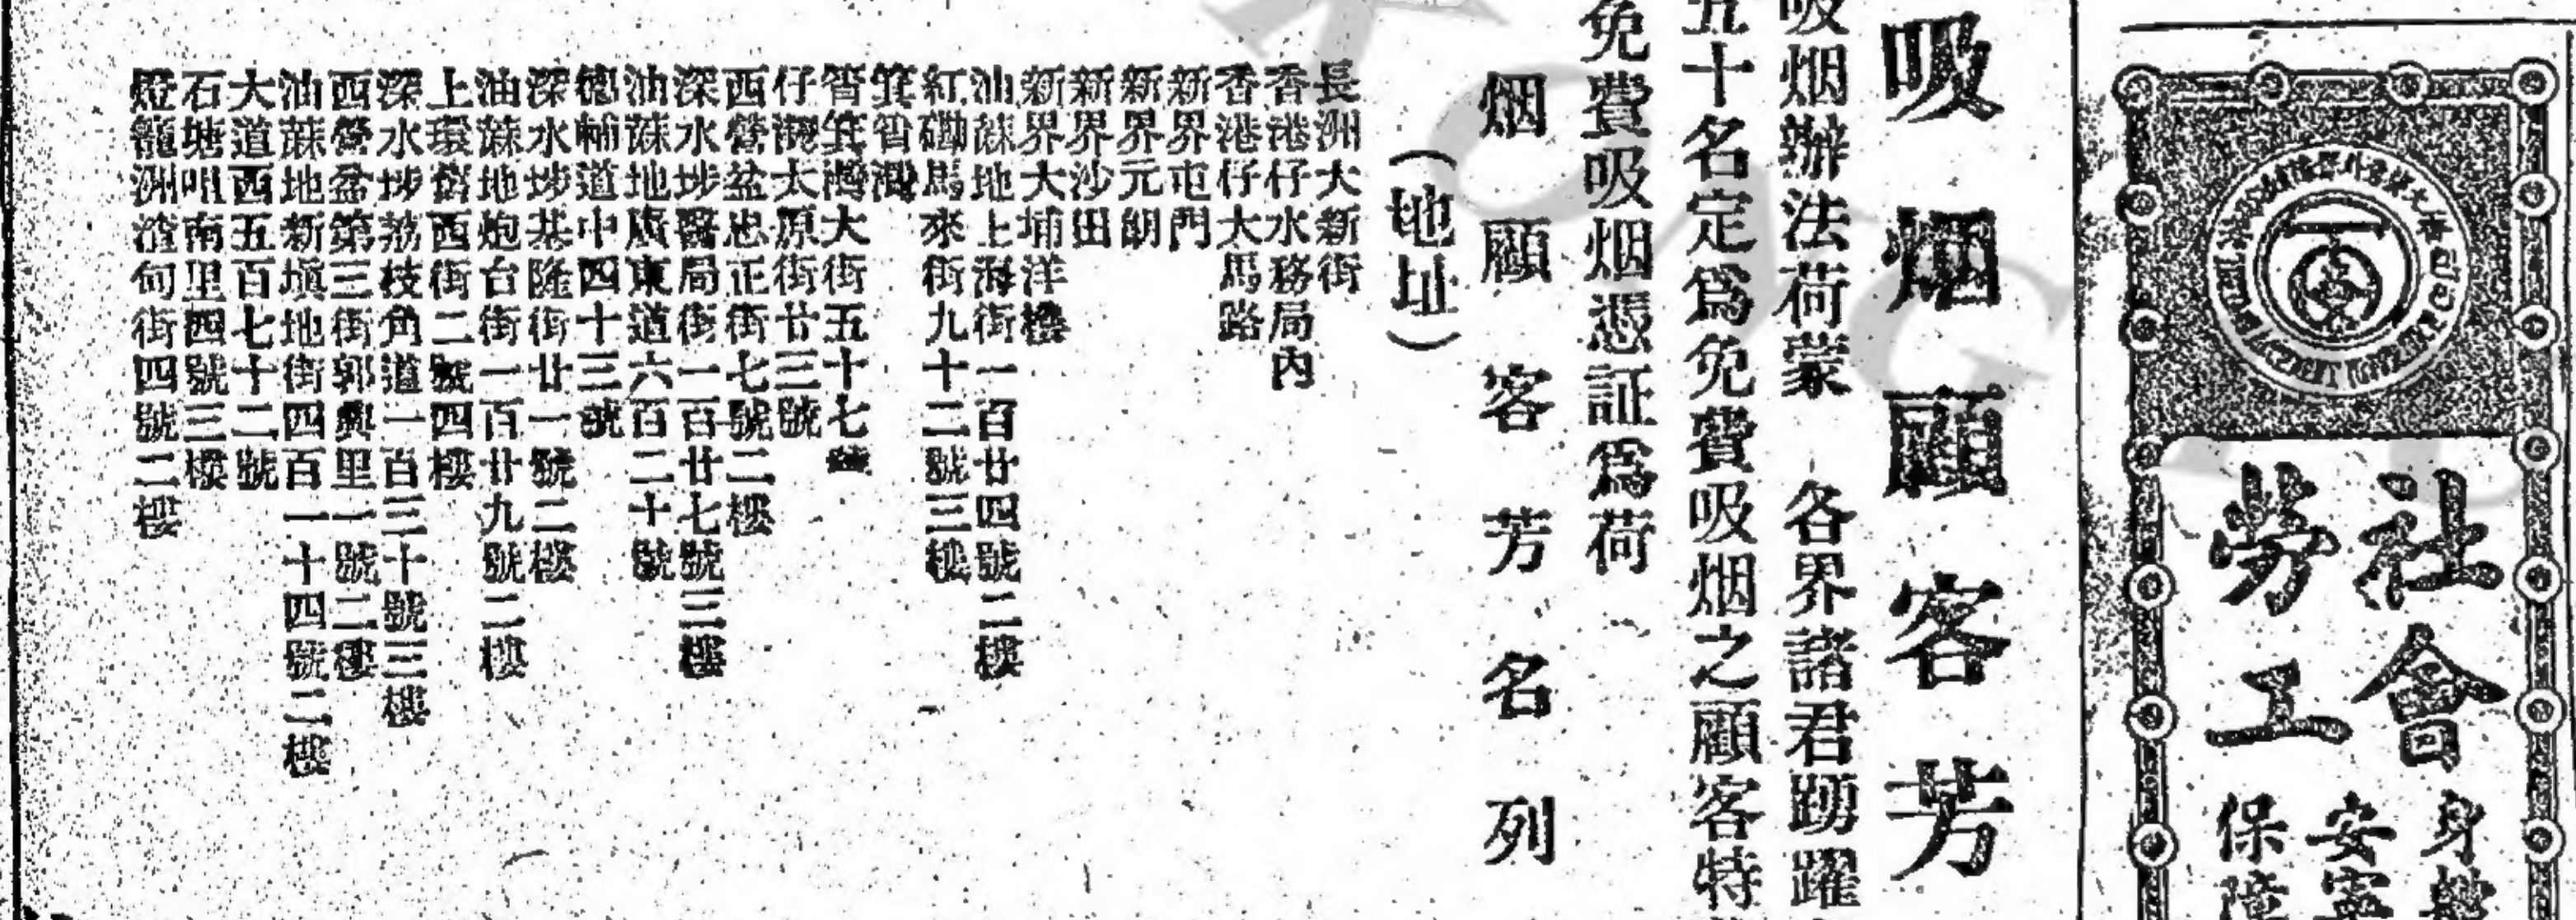 社會
勞工
身
安
保障
吸烟顧客芳
吸烟辦法荷蒙 各界諸君踴躍
五十名定爲免費吸烟之顧客特
免費吸烟憑証爲荷
烟顧客芳名列
(地址)
長洲大新街
香港仔水務局內
香港仔大馬路
新界屯門
新界元朗
新界沙田
新界大埔洋樓
油蔴地上海街一百廿四號二樓
紅磡馬來街九十二號三樓
箕筲灣
筲箕灣大街五十七號
仔灣太原街廿三號
西營盆忠正街七號二樓
深水埗醫局街一百廿七號三樓
油蔴地廣東道六百二十號
德輔道中四十三號
深水埗基隆街廿一號二樓
油蔴地炮台街一百廿九號二樓
上環西街二號四樓
深水埗荔枝角道一百三十號三樓
西營盆第三街郭興里一號二樓
油蔴地新塡地街四百一十四號二樓
大道西五百七十二號
石塘咀南里四號三樓
燈籠洲渣甸街四號二樓